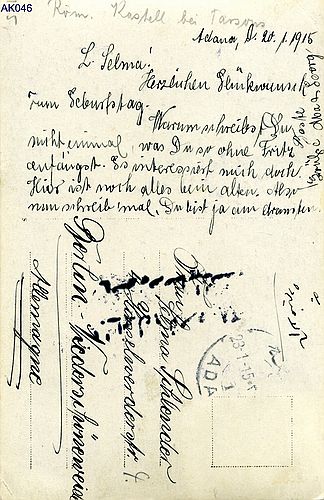 AK046
Röm. Kastell bei Tarsous
Adana, d. 20.1.1915
L. Selma!
Herzlichen Glückwunsch
zum Geburtstag.
Warum schreibst Du
nicht einmal, was Du so ohne Fritz
anfängst. Es interessiert mich doch.
Hier ist noch alles beim alten. Also
nun schreib mal. Du bist ja am dransten.
Frau
Selma Schlendor
Berlin-Niederschöneweide
Allemagne
ADA